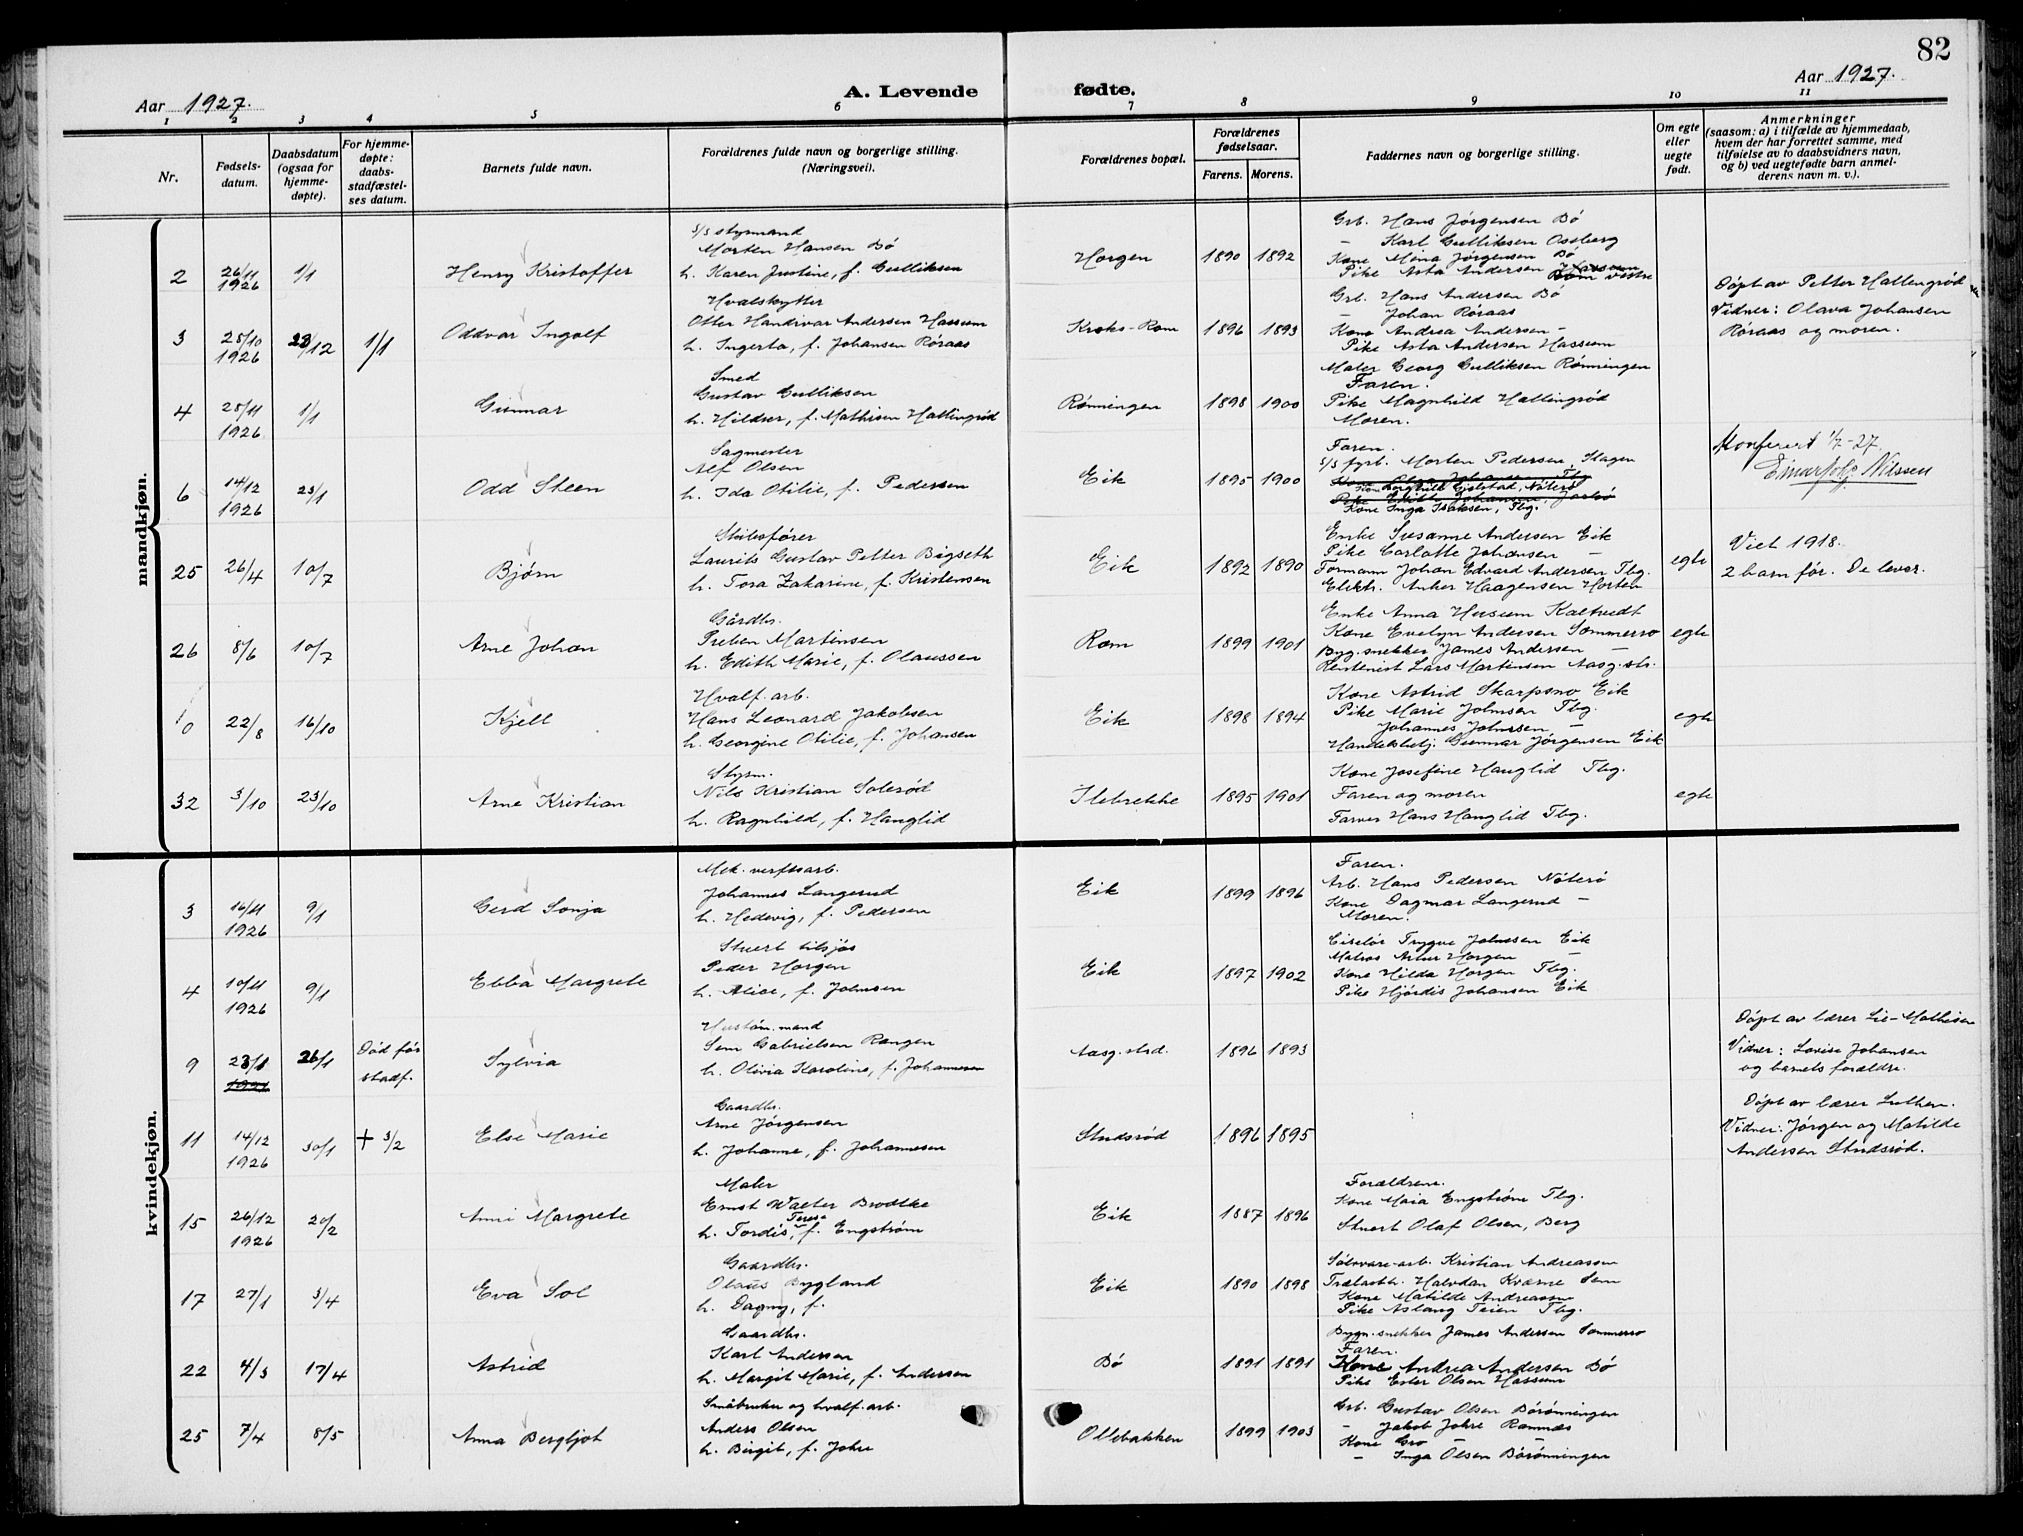 82
Aar 1927.
A. Levende fødte.
Aar 1927.
1 2 3 4 5 6 7 8 9 10 11
Nr.
Fødsels-
datum.
Daabsdatum
(ogsaa for
hjemme-
døpte).
For hjemme-
døpte:
daabs-
stadfæstel-
ses datum.
Barnets fulde navn.
Forældrenes fulde navn og borgerlige stilling.
(Næringsvei).
Forældrenes bopæl.
Forældrenes
fødselsaar.
Farens. Morens.
Faddernes navn og borgerlige stilling.
Om egte
eller
uegte
født.
Anmerkninger
(saasom: a) i tilfælde av hjemmedaab,
hvem der har forrettet samme, med
tilføielse av to daabsvidners navn,
og b) ved uegtefødte barn anmel-
derens navn m. v.).
mandkjøn.
2 26/11 1926 1/1 Henry Kristoffer
S/S styrmand
Morten Hansen Bø
h. Karen Justine, f. Gulliksen
Horgen 1890 1892
Grb. Hans Jørgensen Bø
— Karl Gulliksen Ossberg
Kone Mina Jørgensen Bø
Pike Asta Andersen Hassum
3 25/10 1926 23/12 1/1 Oddvar Ingolf
Hvalskytter
Otter Handivar Andersen Hassum
h. Ingerta, f. Johansen Røraas
Kroks-Rom 1896 1893
Grb. Hans Andersen Bø
— Johan Røraas
Kone Andrea Andersen —
Pike Asta Andersen Hassum
Døpt av Petter Hallengrød
Vidner: Olava Johansen
Røraas og moren.
4 25/11 1926 1/1 Gunnar
Smed
Gustav Gulliksen
h. Hildur, f. Mathisen Hallingrød
Rønningen 1898 1900
Maler Georg Gulliksen Rønningen
Faren.
Pike Magnhild Hallingrød
Moren.
6 14/12 1926 23/1 Odd Steen
Sagmester
Alf Olsen
h. Ida Otilie, f. Pedersen
Eik 1895 1900
Faren.
S/S fyrb. Morten Pedersen Slagen
Kone Borghild Gjelstad, Nøterø
Kone Inga Isaksen, Tbg.
Konferert 1/7-27
Einar Nilssen
25 26/4 10/7 Bjørn
Skibsfører
Laurits Gustav Petter Bigseth
h. Tora Zakarine, f. Kristensen
Eik 1892 1890
Enke Susanne Andersen Eik
Pike Carlotte Johansen —
Formann Johan Edvard Andersen Tbg.
Elektr. Anker Haagensen Horten
egte
Viet 1918.
2 barn før. De lever.
26 8/6 10/7 Arne Johan
Gårdbr.
Preben Martinsen
h. Edith Marie, f. Olaussen
Rom 1899 1901
Enke Anna Husum Kaltvedt
Kone Evelyn Andersen Sommerro
Byg.snekker James Andersen —
Rentenist Lars Martinsen Aasg.str.
egte
0 22/8 16/10 Kjell
Hvalf. arb.
Hans Leonard Jakobsen
h. Georgine Otilie, f. Johansen
Eik 1898 1894
Kone Astrid Skarpsno Eik
Pike Marie Johnsen Tbg.
Johannes Johnsen —
Handelsbetj. Gunnar Jørgensen Eik
egte
32 3/10 23/10 Arne Kristian
Styrm.
Nils Kristian Solerød
h. Ragnhild, f. Hanglid
Ilebrekke 1895 1901
Kone Josefine Hanglid Tbg.
Faren og moren
Farver Hans Hanglid Tbg.
egte
kvindekjøn.
3 16/11 1926 9/1 Gerd Sonja
Mek. verftsarb.
Johannes Langerud
h. Hedevig, f. Pedersen
Eik 1899 1896
Faren.
Arb. Hans Pedersen Nøterø
Kone Dagmar Langerud —
Moren.
4 10/11 1926 9/1 Ebba Margrete
Stuert tilsjøs
Peder Horgen
h. Alice, f. Johnsen
Eik 1897 1902
Ciselør Trygve Johnsen Eik
Matros Artur Horgen —
Kone Hilda Horgen Tbg.
Pike Hjørdis Johansen Eik
9 23/1 26/1 Død før
stadf.
Sylvia
Hustøm. mand
Sem Gabrielsen Rangen
h. Olivia Karoline, f. Johannesen
Aasg.strd. 1896 1893
Døpt av lærer Lie-Mathisen
Vidner: Lovise Johansen
og barnets forældre.
11 14/12 1926 30/1 + 3/2 Else Marie
Gaardbr.
Arne Jørgensen
h. Johanne, f. Johannesen
Studsrød 1896 1895
Døpt av lærer Luthen.
Vidner: Jørgen og Matilde
Andersen Studsrød.
15 26/12 1926 20/2 Anni Margrete
Maler
Ernst Walter Brodtke
h. Tordis Terese, f. Engstrøm
Eik 1887 1896
Forældrene.
Kone Maia Engstrøm Tbg.
Stuert Olaf Olsen, Berg
17 27/1 3/4 Eva Sol
Gaardbr.
Olaus Bygland
h. Dagny, f.
Eik 1890 1898
Sølvvare-arb. Kristian Andreassen
Trælastb. Halvdan Kværne Sem
Kone Matilde Andreassen
Pike Aslaug Teien Tbg.
22 4/3 17/4 Astrid
Gaardbr.
Karl Andersen
h. Margit Marie, f. Andersen
Bø 1891 1891
Bygn.snekker James Andersen Sommerro
Faren.
Kone Andrea Andersen Bø
Pike Ester Olsen Hassum
25 7/4 8/5 Anna Bergljot
Småbruker og hvalf.arb.
Anders Olsen
h. Birgit, f. Johre
Ollebakken 1899 1903
Grb. Gustav Olsen Børønningen
— Jakob Johre Ramnæs
Kone Gro —
— Inga Olsen Børønningen